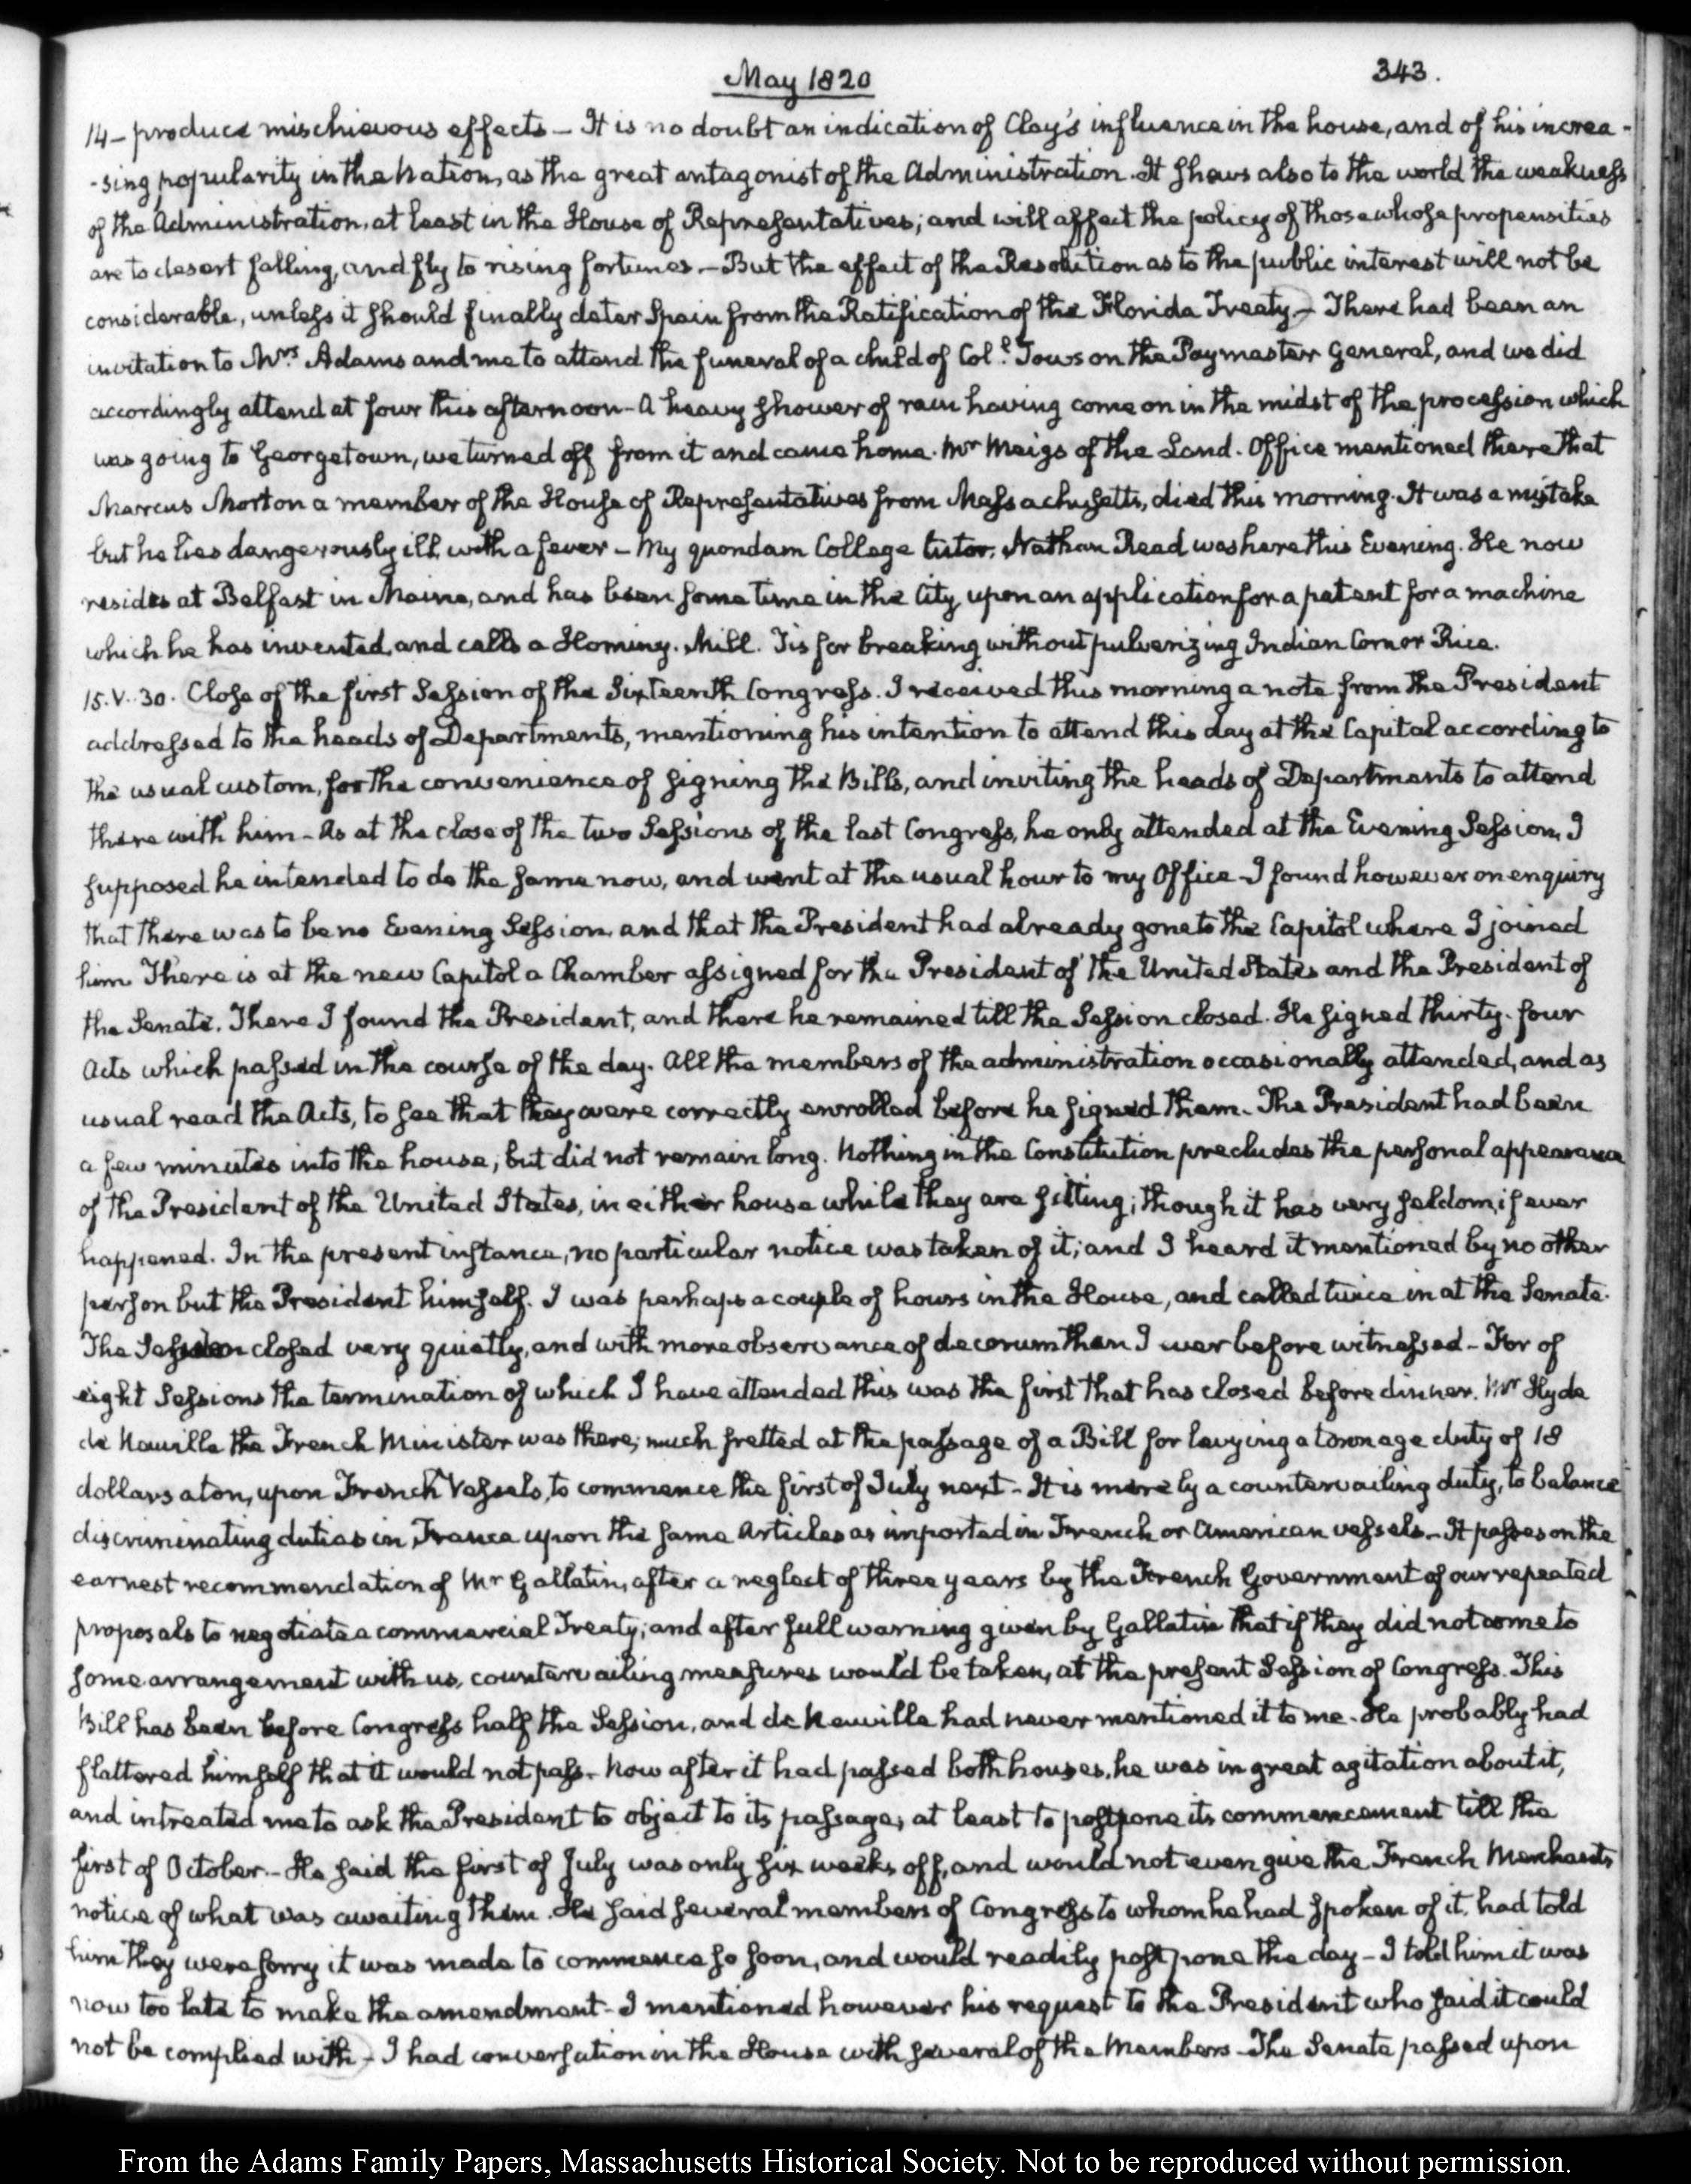 May 1820
343.
14 – produce mischievous effects – It is no doubt an indication of Clay's influence in the house, and of his increa-
-sing popularity in the Nation, as the great antagonist of the Administration. It shews also to the world the weakness
of the Administration, at least in the House of Representatives; and will affect the policy of those whose propensities
are to desert falling, and fly to rising fortunes. – But the effect of the Resolution as to the public interest will not be
considerable, unless it should finally deter Spain from the Ratification of the Florida Treaty – There had been an
invitation to Mrs Adams and me to attend the funeral of a child of Coll. Towson the Paymaster General, and we did
accordingly attend at four this afternoon – A heavy shower of rain having come on in the midst of the procession which
was going to Georgetown, we turned off from it and came home. Mr Meigs of the Land. Office mentioned there that
Marcus Morton a member of the House of Representatives from Massachusetts, died this morning. It was a mistake
but he lies dangerously ill, with a fever – My quondam College tutor, Nathan Read was here this Evening. He now
resides at Belfast in Maine, and has been some time in the City, upon an application for a patent for a machine
which he has invented, and calls a Hominy. Mill. Tis for breaking without pulverizing Indian Corn or Rice.
15. V. 30. Close of the first Session of the Sixteenth Congress. I received this morning a note from the President
addressed to the heads of Departments, mentioning his intention to attend this day at the Capitol according to
the usual custom, for the convenience of signing the Bills, and inviting the heads of Departments to attend
there with him – As at the close of the two Sessions of the last Congress, he only attended at the Evening Session, I
supposed he intended to do the same now, and went at the usual hour to my Office – I found however on enquiry
that there was to be no Evening Session, and that the President had already gone to the Capitol where I joined
him. There is at the new Capitol a Chamber assigned for the President of the United States and the President of
the Senate. There I found the President, and there he remained till the Session closed. He signed thirty-four
Acts which passed in the course of the day. All the members of the administration occasionally attended, and as
usual read the Acts, to see that they were correctly enrolled before he signed them. The President had been
a few minutes into the house, but did not remain long. Nothing in the Constitution precludes the personal appearance
of the President of the United States, in either house while they are sitting; though it has very seldom, if ever
happened. In the present instance, no particular notice was taken of it; and I heard it mentioned by no other
person but the President himself. I was perhaps a couple of hours in the House, and called twice in at the Senate.
The Session closed very quietly, and with more observance of decorum than I ever before witnessed – For of
eight Sessions the termination of which I have attended this was the first that has closed before dinner. Mr Hyde
de Neuville the French Minister was there, much fretted at the passage of a Bill for levying a tonnage duty of 18
dollars a ton, upon French Vessels, to commence the first of July next – It is merely a countervailing duty, to balance
discriminating duties in France upon the same Articles as imported in French or American vessels. – It passes on the
earnest recommendation of Mr Gallatin, after a neglect of three years by the French Government of our repeated
proposals to negotiate a commercial Treaty; and after full warning given by Gallatin that if they did not come to
some arrangement with us, countervailing measures would be taken, at the present Session of Congress. This
Bill has been before Congress half the Session, and de Neuville had never mentioned it to me. He probably had
flattered himself that it would not pass. Now after it had passed both houses, he was in great agitation about it,
and intreated me to ask the President to object to its passage, at least to postpone its commencement till the
first of October. – He said the first of July was only six weeks off, and would not even give the French Merchants
notice of what was awaiting them. He said several members of Congress to whom he had spoken of it, had told
him they were sorry it was made to commence so soon, and would readily postpone the day – I told him it was
now too late to make the amendment – I mentioned however his request to the President who said it could
not be complied with – I had conversation in the House with several of the Members – The Senate passed upon
From the Adams Family Papers, Massachusetts Historical Society. Not to be reproduced without permission.